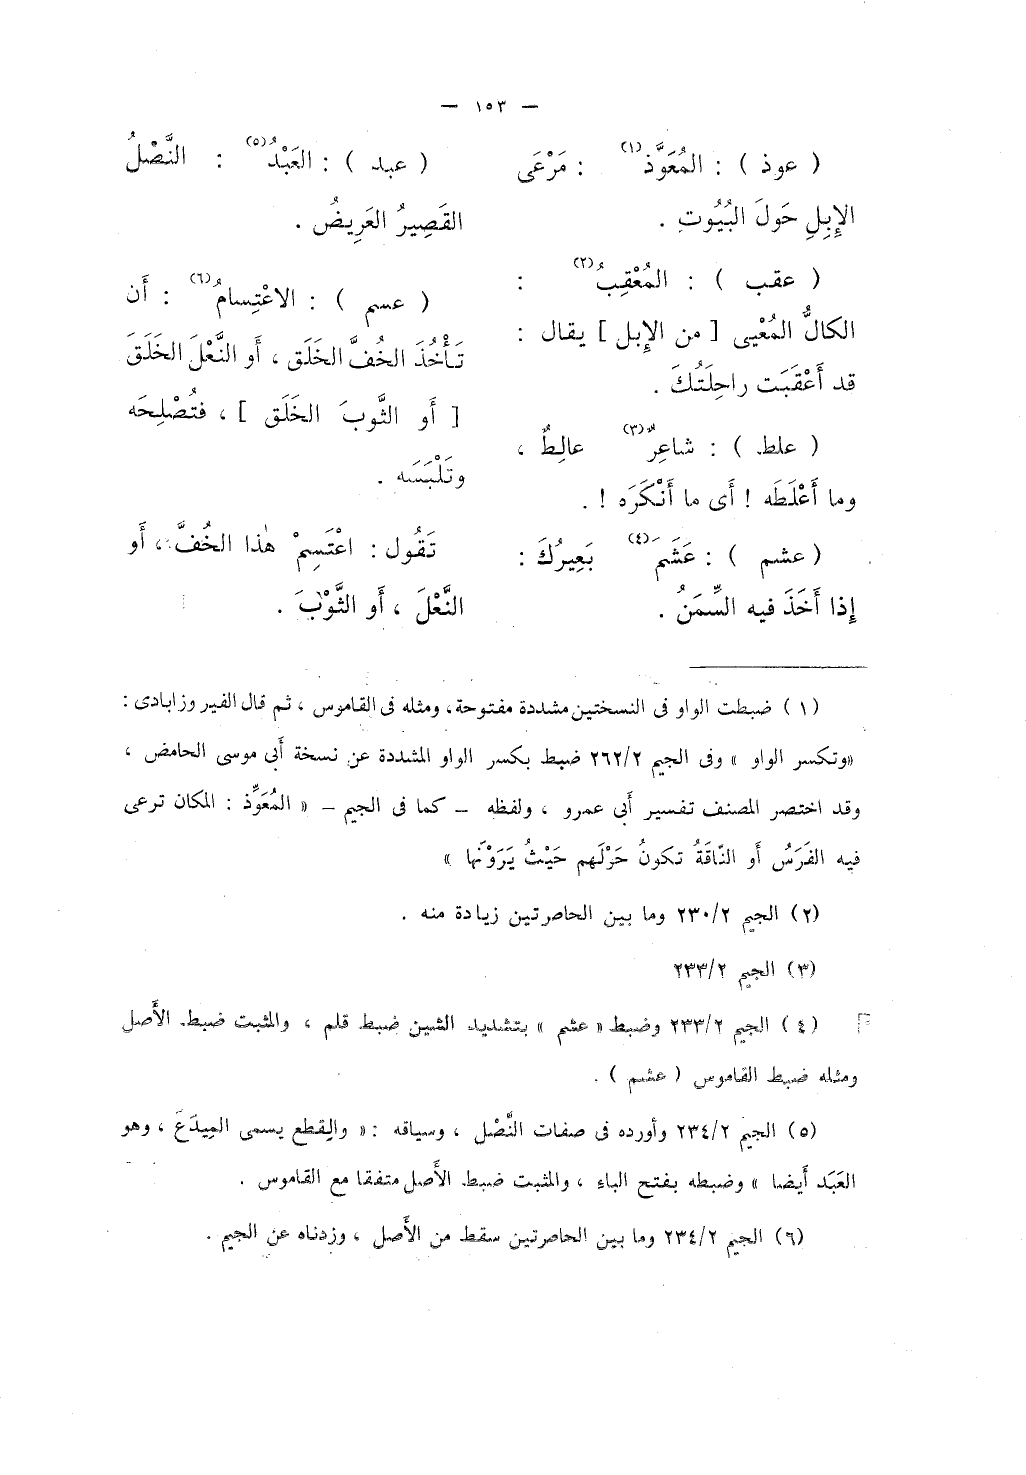 — ١٥٣ —
( عوذ ) : المُعَوَّذُ(١) : مَرْعَى
الإِبِلِ حَولَ البُيُوتِ .
( عقب ) : المُعْقِبُ(٢) :
الكالُّ المُعْيِى [ من الإِبل ] يقال :
قد أَعْقَبَت راحِلَتُكَ .
( علط ) : شاعِرٌ(٣) عالِطٌ ،
وما أَعْلَطَه ! أَى ما أَنْكَرَه ! .
( عشم ) : عَشَمَ(٤) بَعِيرُكَ :
إِذا أَخَذَ فيه السِّمَنُ .
( عبد ) : العَبْدُ(٥) : النَّصْلُ
القَصِيرُ العَرِيضُ .
( عسم ) : الاعْتِسامُ(٦) : أَن
تَأْخُذَ الخُفَّ الخَلَق ، أَو النَّعْلَ الخَلَقَ
[ أَو الثَّوبَ الخَلَق ] ، فتُصْلِحَه
وتَلْبَسَه .
تَقُول : اعْتَسِمْ هٰذا الخُفَّ ، أَو
النَّعْلَ ، أَو الثَّوْبَ .
(١) ضبطت الواو فى النسختين مشددة مفتوحة ، ومثله فى القاموس ، ثم قال الفيروزابادى :
«وتكسر الواو » وفى الجيم ٢٦٢/٢ ضبط بكسر الواو المشددة عن نسخة أبى موسى الحامض ،
وقد اختصر المصنف تفسير أبى عمرو ، ولفظه – كما فى الجيم – « المُعَوِّذ : المكان ترعى
فيه الفَرَسُ أو النّاقَةُ تكونُ حَوْلَهم حَيْثُ يَرَوْنَها »
(٢) الجيم ٢٣٠/٢ وما بين الحاصرتين زيادة منه .
(٣) الجيم ٢٣٣/٢
(٤) الجيم ٢٣٣/٢ وضبط « عشم » بتشديد الشين ضبط قلم ، والمثبت ضبط الأَصل
ومثله ضبط القاموس ( عشم ) .
(٥) الجيم ٢٣٤/٢ وأورده فى صفات النَّصْل ، وسياقه : « والقِطع يسمى المِيدَعَ ، وهو
العَبَد أَيضا » وضبطه بفتح الباء ، والمثبت ضبط الأَصل متفقا مع القاموس .
(٦) الجيم ٢٣٤/٢ وما بين الحاصرتين سقط من الأَصل ، وزدناه عن الجيم .